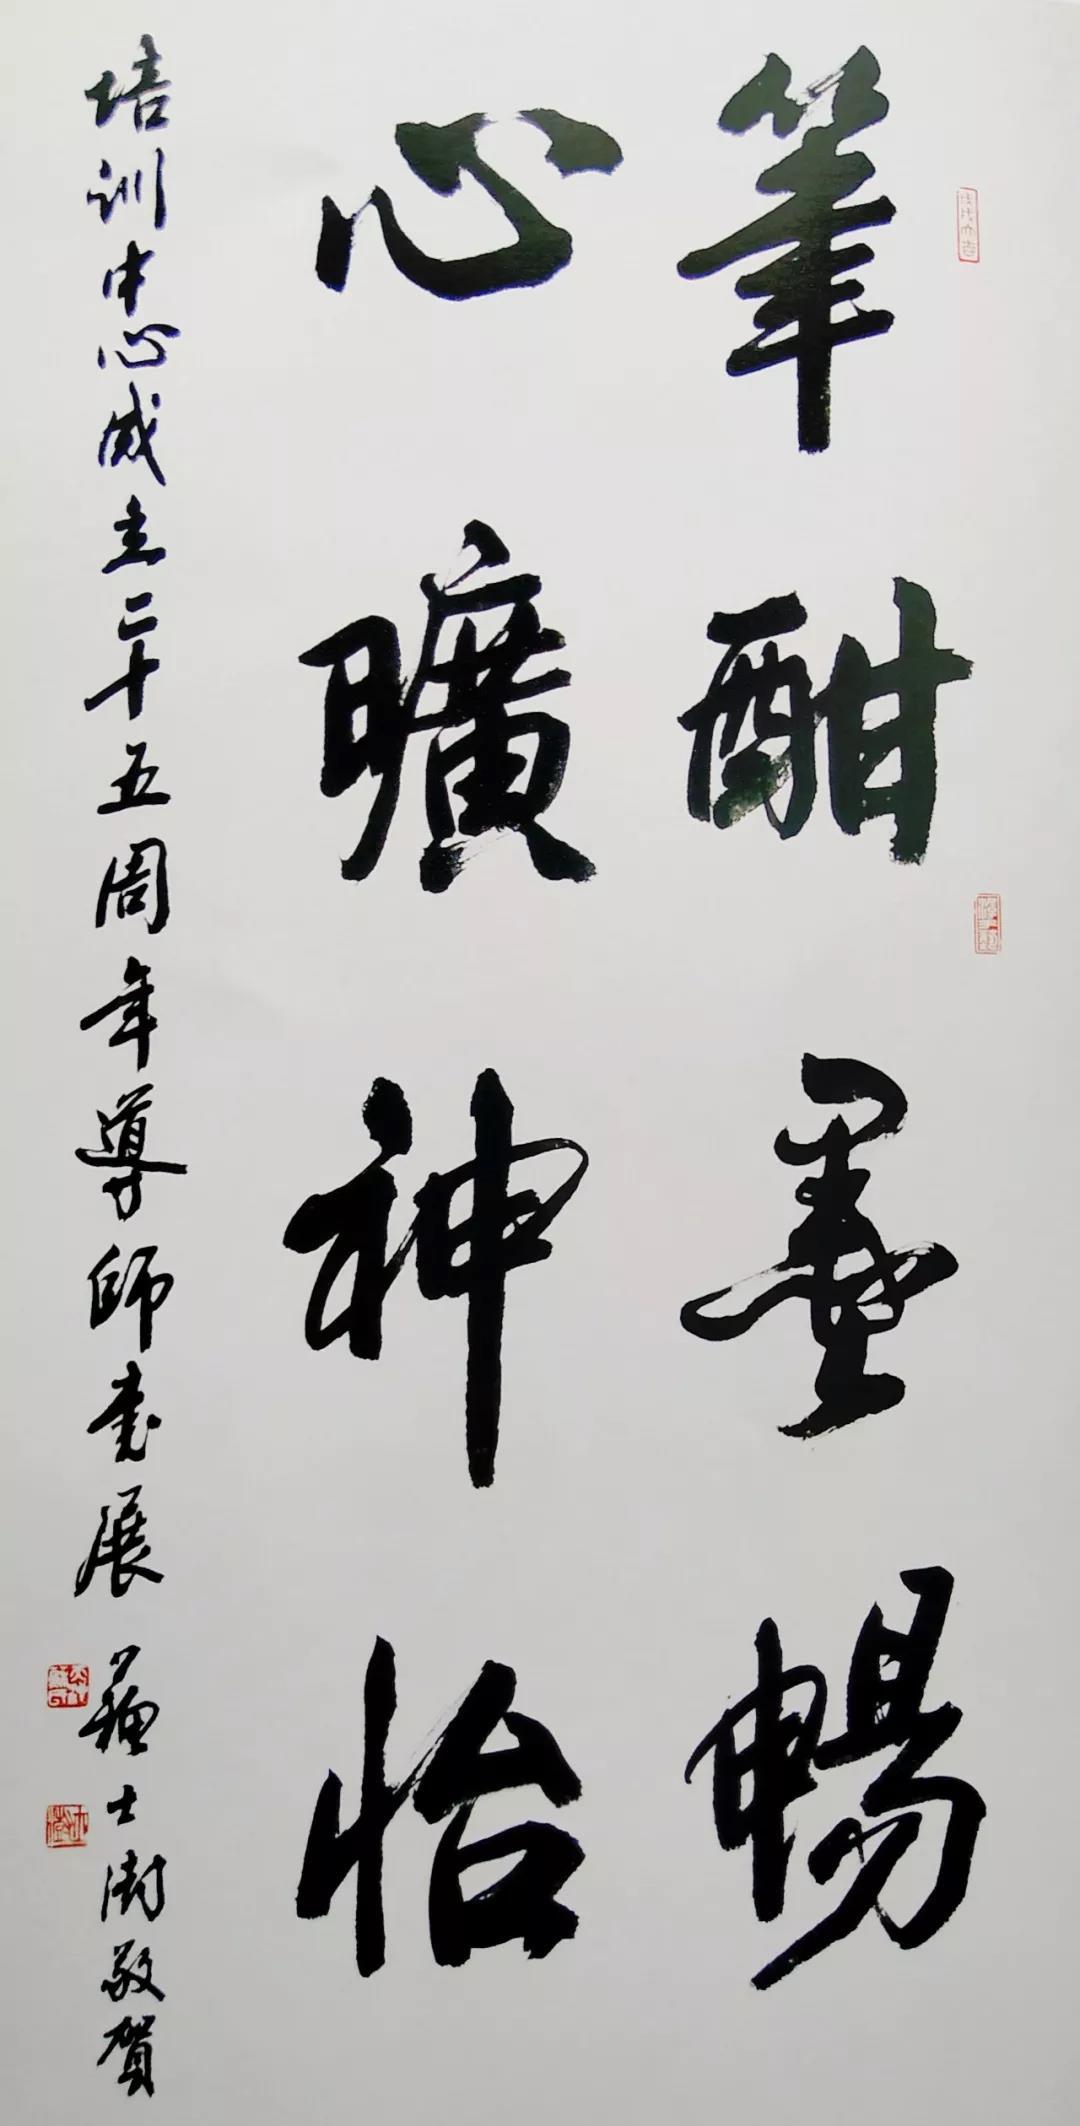 筆酣墨暢
心曠神怡
培训中心成立二十五周年導師書展 蘇士澍敬賀
戊戌大吉